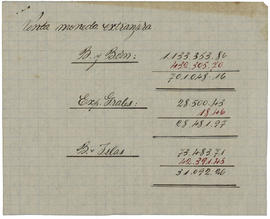 Venta moneda extranjera
B. y Born: 1.133.353.86
432.305.70
701.048.16
Exp. Grales: 28.500.43
18.46
28.481.97
B. Islas 73.483.71
42.391.45
31.092.26